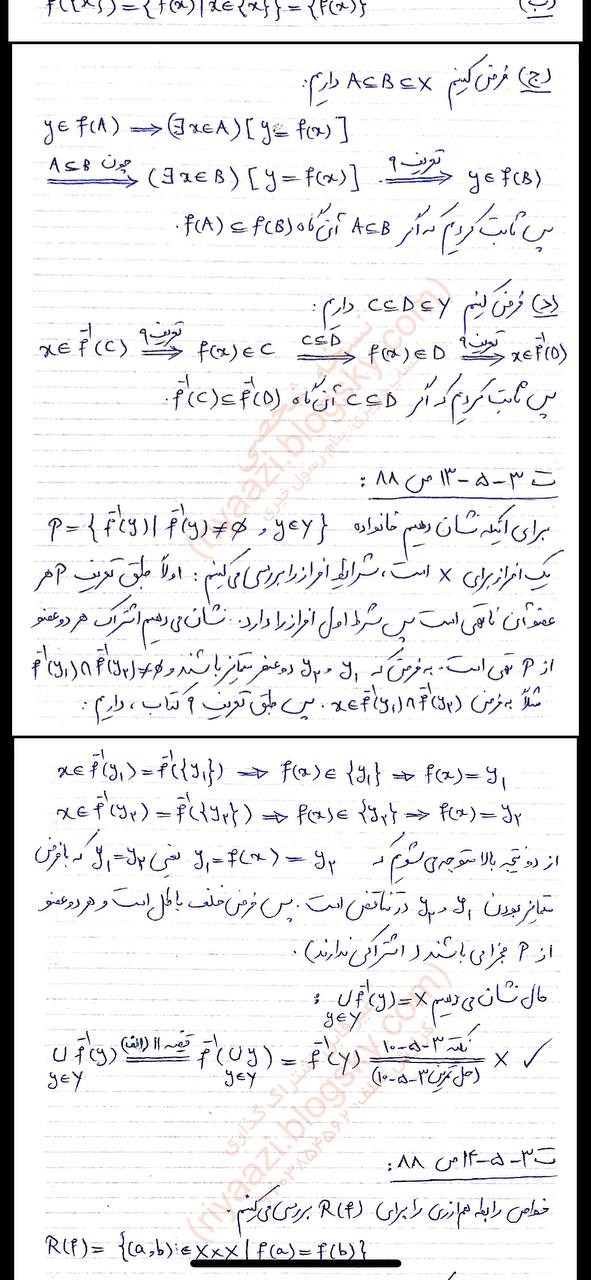 f({x}) = {f(x) | x∈{x}} = {f(x)} (ب)
(ج) فرض کنیم A⊆B⊆X داریم:
y∈f(A) ⟹ (∃x∈A) [y = f(x)]
چون A⊆B ⟹ (∃x∈B) [y = f(x)] تعریف ۹ ⟹ y∈f(B)
پس ثابت کردیم که اگر A⊆B آنگاه f(A) ⊆ f(B).
(د) فرض کنیم C⊆D⊆Y داریم:
x∈f⁻¹(C) تعریف ۹ ⟹ f(x)∈C C⊆D ⟹ f(x)∈D تعریف ۹ ⟹ x∈f⁻¹(D)
پس ثابت کردیم که اگر C⊆D آنگاه f⁻¹(C)⊆f⁻¹(D).
ت ۳-۵-۱۳ ص ۸۸:
برای اینکه نشان دهیم خانواده P = {f⁻¹(y) | f⁻¹(y)≠∅ , y∈Y}
یک افراز برای X است، شرایط افراز را بررسی می‌کنیم: اولاً طبق تعریف P هر
عضو آن ناتهی است پس شرط اول افراز را دارد. نشان می‌دهیم اشتراک هر دو عضو
از P تهی است. به فرض که y₁ و y₂ دو عنصر متمایز باشند و f⁻¹(y₁)∩f⁻¹(y₂)≠∅
مثلاً به فرض x∈f⁻¹(y₁)∩f⁻¹(y₂). پس طبق تعریف ۹ کتاب، داریم:
x∈f⁻¹(y₁) = f⁻¹({y₁}) ⟹ f(x)∈{y₁} ⟹ f(x)=y₁
x∈f⁻¹(y₂) = f⁻¹({y₂}) ⟹ f(x)∈{y₂} ⟹ f(x)=y₂
از دو نتیجه بالا متوجه می‌شویم که y₁=f(x)=y₂ یعنی y₁=y₂ که با فرض
متمایز بودن y₁ و y₂ در تناقض است. پس فرض خلف باطل است و هر دو عضو
از P مجزا می‌باشند (اشتراکی ندارند).
حال نشان می‌دهیم ∪f⁻¹(y)=X :
y∈Y
∪f⁻¹(y) قضیه ۱۱ (الف) = f⁻¹(∪y) = f⁻¹(Y) نکته ۳-۵-۱۰ = X ✓
y∈Y y∈Y (حل تمرین ۳-۵-۱۰)
ت ۳-۵-۱۴ ص ۸۸:
خواص رابطه هم‌ارزی را برای R(f) بررسی می‌کنیم.
R(f) = {(a,b)∈X×X | f(a)=f(b)}
نسخه شخصی
(riyaazi.blogsky.com)
(riyaazi.blogsky.com)